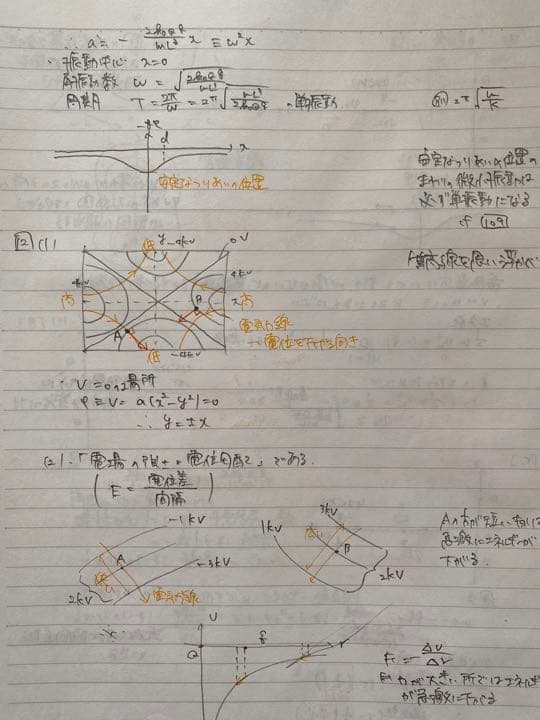 ∴ a = - 2k₀Qq/mL³ x ≡ ω²x
振動中心 x=0
角振動数 ω = √(2k₀Qq/mL³)
周期 T = 2π/ω = 2π√(mL³/2k₀Qq) の単振動
2π√(m/k)
d
x
安定なつりあいの位置
安定なつりあいの位置の
まわりの微小振動は
必ず単振動になる
cf 109
[2] (1)
y -4kV
0V
低
4kV
4kV
高
x 高
A
B
低
-4kV
電気力線
→電位を下げる向き
V=0の場所
φ≡V=a(x²-y²)=0
∴ y=±x
(2)「電場の強さは電位勾配」である。
(E = 電位差/間隔)
-1kV
A
-3kV
2kV
電気力線
3kV
1kV
B
2kV
Aの方が短い
急激にエネルギーが
下がる
U
O
r
F = ΔU/Δr
Fが大きい所ではエネルギー
が急激に下がる